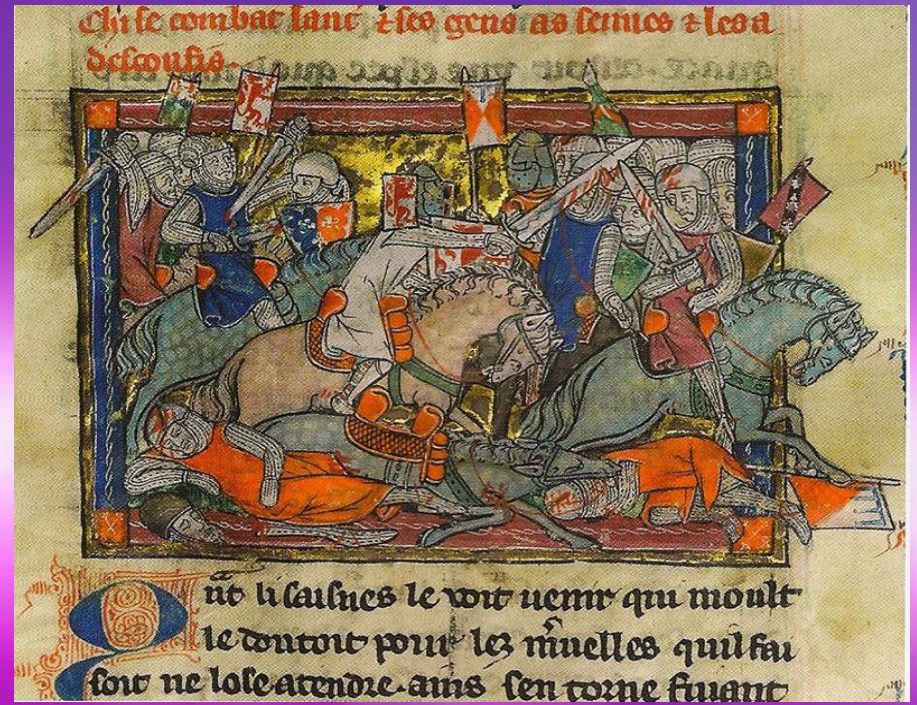 Chi se combat lanc̄ ⁊ ses gens as sesnes ⁊ les a
desconfis.
Qant li saisnes le voit uenir qui moult
le doutoit pour lez m̄uelles quil fai
soit ne lose atendre. ains sen torne fuiant